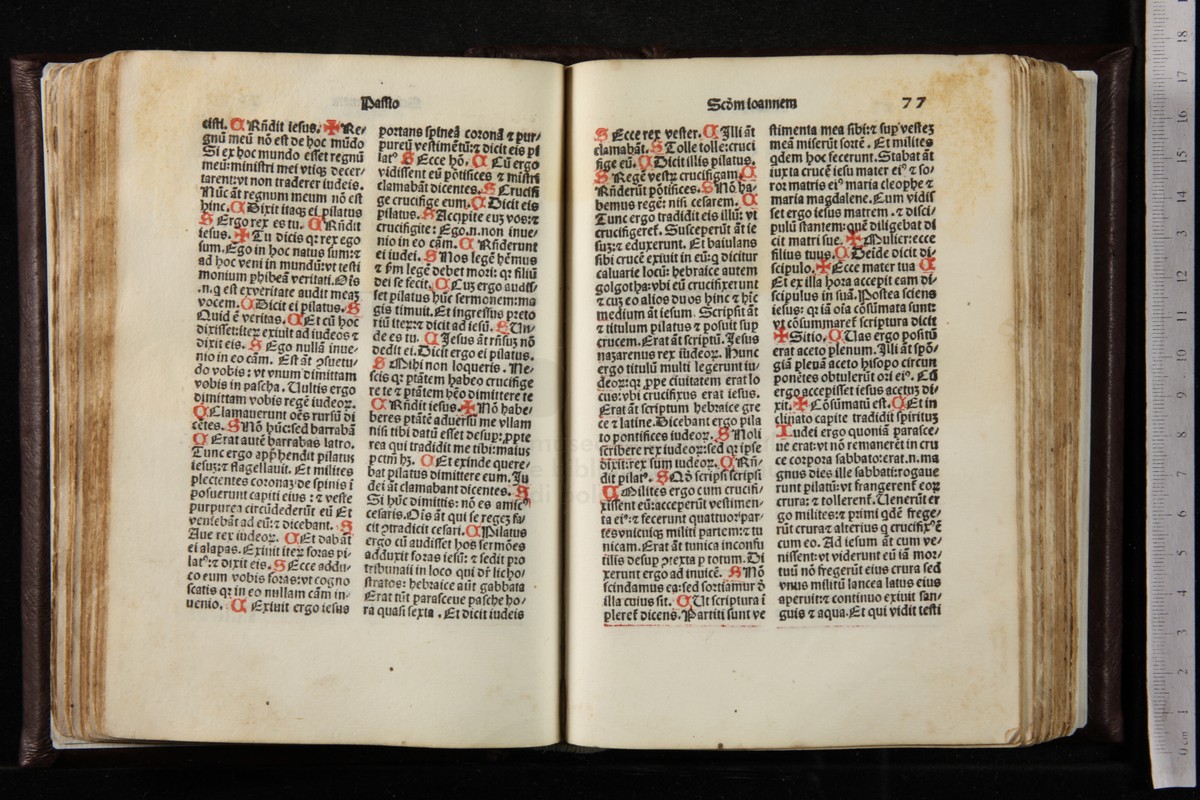 Passio
cisti. C Rñdit iesus. ✠ Re-
gnũ meũ nõ est de hoc mũdo
Si ex hoc mundo esset regnũ
meũ: ministri mei vtiqꝫ decer-
tarent: vt non traderer iudeis.
Nũc ãt regnum meum nõ est
hinc. C Dixit itaqꝫ ei pilatus
S Ergo rex es tu. C Rñdit
iesus. ✠ Tu dicis qꝛ rex ego
sum. Ego in hoc natus sum: ⁊
ad hoc veni in mundũ: vt testi
monium phibeã veritati. Oĩs
.n. q est ex veritate audit meaꝫ
vocem. C Dicit ei pilatus. S
Quid ẽ veritas. C Et cũ hoc
dixisset: iteꝝ exiuit ad iudeos ⁊
dixit eis. S Ego nullã inue-
nio in eo cãm. Est ãt ꝯsuetu-
do vobis: vt vnum dimittam
vobis in pascha. Uultis ergo
dimittam vobis regẽ iudeoꝝ.
C Clamauerunt oẽs rursũ di
cẽtes. S Nõ hũc: sed barrabã
C Erat autẽ barrabas latro.
Tunc ergo apphendit pilatus
iesuꝫ: ⁊ flagellauit. Et milites
plectentes coronaꝫ de spinis ĩ
posuerunt capiti eius: ⁊ veste
purpurea circũdederũt eũ Et
veniebãt ad eũ: ⁊ dicebant. S
Aue rex iudeoꝝ. C Et dabãt
ei alapas. Exiuit iteꝝ foras pi-
latꝰ: ⁊ dixit eis. S Ecce addu-
co eum vobis foras: vt cogno
scatis qꝛ in eo nullam cãm in-
uenio. C Exiuit ergo iesus
portans spineã coronã ⁊ pur-
pureũ vestimẽtũ: ⁊ dicit eis pi
latꝰ S Ecce hõ. C Cũ ergo
vidissent eũ põtifices ⁊ mĩstri
clamabãt dicentes. S Crucifi
ge crucifige eum. C Dicit eis
pilatus. S Accipite euꝫ vos: ⁊
crucifigite: Ego .n. non inue-
nio in eo cãm. C Rñderunt
ei iudei. S Nos legẽ hẽmus
⁊ ẽm legẽ debet mori: qꝛ filiũ
dei se fecit. C Cuꝫ ergo audis-
set pilatus hũc sermonem: ma
gis timuit. Et ingressus preto
riũ iteꝝ: ⁊ dicit ad iesũ. S Un-
de es tu. C Jesus ãt rñsuꝫ nõ
dedit ei. Dicit ergo ei pilatus.
S Mihi non loqueris. Ne-
scis qꝛ ptãtem habeo crucifige
re te ⁊ ptãtem hẽo dimittere te
C Rñdit iesus. ✠ Nõ habe-
beres ptãtẽ aduersũ me vllam
nisi tibi datũ esset desup: ꝓpte
rea qui tradidit me tibi: maius
pctm̃ hꝫ. C Et exinde quere-
bat pilatus dimittere eum. Ju
dei ãt clamabant dicentes. S
Si hũc dimittis: nõ es amicꝰ
cesaris. Oĩs ãt qui se regeꝫ fa-
cit ꝯtradicit cesari. C Pilatus
ergo cũ audisset hos sermões
adduxit foras iesũ: ⁊ sedit pro
tribunali in loco qui dr̃ licho-
stratos: hebraice aũt gabbata
Erat tũt parasceue pasche ho-
ra quasi sexta. Et dicit iudeis
Scõm ioannem 77
S Ecce rex vester. C Illi ãt
clamabãt. S Tolle tolle: cruci
fige eũ. C Dicit illis pilatus.
S Regẽ vestꝝ crucifigam. C
Rñderũt põtifices. S Nõ ha-
bemus regẽ: nisi cesarem. C
Tunc ergo tradidit eis illũ: vt
crucifigereť. Susceperũt ãt ie
suꝫ: ⁊ eduxerunt. Et baiulans
sibi crucẽ exiuit in eũ: q dicitur
caluarie locũ: hebraice autem
golgotha: vbi eũ crucifixerunt
⁊ cuꝫ eo alios duos hinc ⁊ hĩc
medium ãt iesum. Scripsit ãt
⁊ titulum pilatus ⁊ posuit sup
crucem. Erat ãt scriptũ. Jesus
naꝫarenus rex iudeoꝝ. Hunc
ergo titulũ multi legerunt iu-
deoꝝ: qꝛ ꝓpe ciuitatem erat lo
cus: vbi crucifixus erat iesus.
Erat ãt scriptum hebraice gre
ce ⁊ latine. Dicebant ergo pila
to pontifices iudeoꝝ. S Noli
scribere rex iudeoꝝ: sed qꝛ ipse
dixit: rex sum iudeoꝝ. C Rñ-
dit pilatꝰ. S Qõ scripsi scripsi
C Milites ergo cum crucifi-
xissent eũ: acceperũt vestimen-
ta eiꝰ: ⁊ fecerunt quattuor par-
tes vnicuiqꝫ militi partem: ⁊ tu
nicam. Erat ãt tunica inconsu
tilis desup ꝯtexta p totum. Di
xerunt ergo ad inuicẽ. S Nõ
scindamus ea: sed sortiamur d̃
illa cuius sit. C Ut scriptura ĩ
plereť dicens. Partiti sunt ve
stimenta mea sibi: ⁊ sup vesteꝫ
meã miserũt sortẽ. Et milites
qdem hoc fecerunt. Stabat ãt
iuxta crucẽ iesu mater eiꝰ ⁊ so-
ror matris eiꝰ maria cleophe ⁊
maria magdalene. Cum vidis
set ergo iesus matrem. ⁊ disci-
pulũ stantem: quẽ diligebat di
cit matri sue. ✠ Mulier: ecce
filius tuus. C Deide dicit di-
scipulo. ✠ Ecce mater tua C
Et ex illa hora accepit eam di-
scipulus in suã. Postea sciens
iesus: qꝛ iã oĩa cõsũmata sunt:
vt cõsummareť scriptura dicit
✠ Sitio. C Uas ergo positũ
erat aceto plenum. Illi ãt spõ-
giã plenã aceto hisopo circum
ponẽtes obtulerũt ori eiꝰ. Cũ
ergo accepisset iesus acetuꝫ di-
xit. ✠ Cõsũmatũ est. C Et in
clinato capite tradidit spirituꝫ
Iudei ergo quoniã parasce-
ue erat: vt nõ remanerẽt in cru
ce corpora sabbato: erat .n. ma
gnus dies ille sabbati: rogaue
runt pilatũ: vt frangerenť eoꝝ
crura: ⁊ tollerenť. Uenerũt er
go milites: ⁊ primi qdẽ frege-
rũt crura: ⁊ alterius q crucifixꝰ ẽ
cum eo. Ad iesum ãt cum ve-
nissent: vt viderunt eũ iã mor-
tuũ nõ fregerũt eius crura sed
vnus militũ lancea latus eius
aperuit: ⁊ continuo exiuit san-
guis ⁊ aqua. Et qui vidit testi